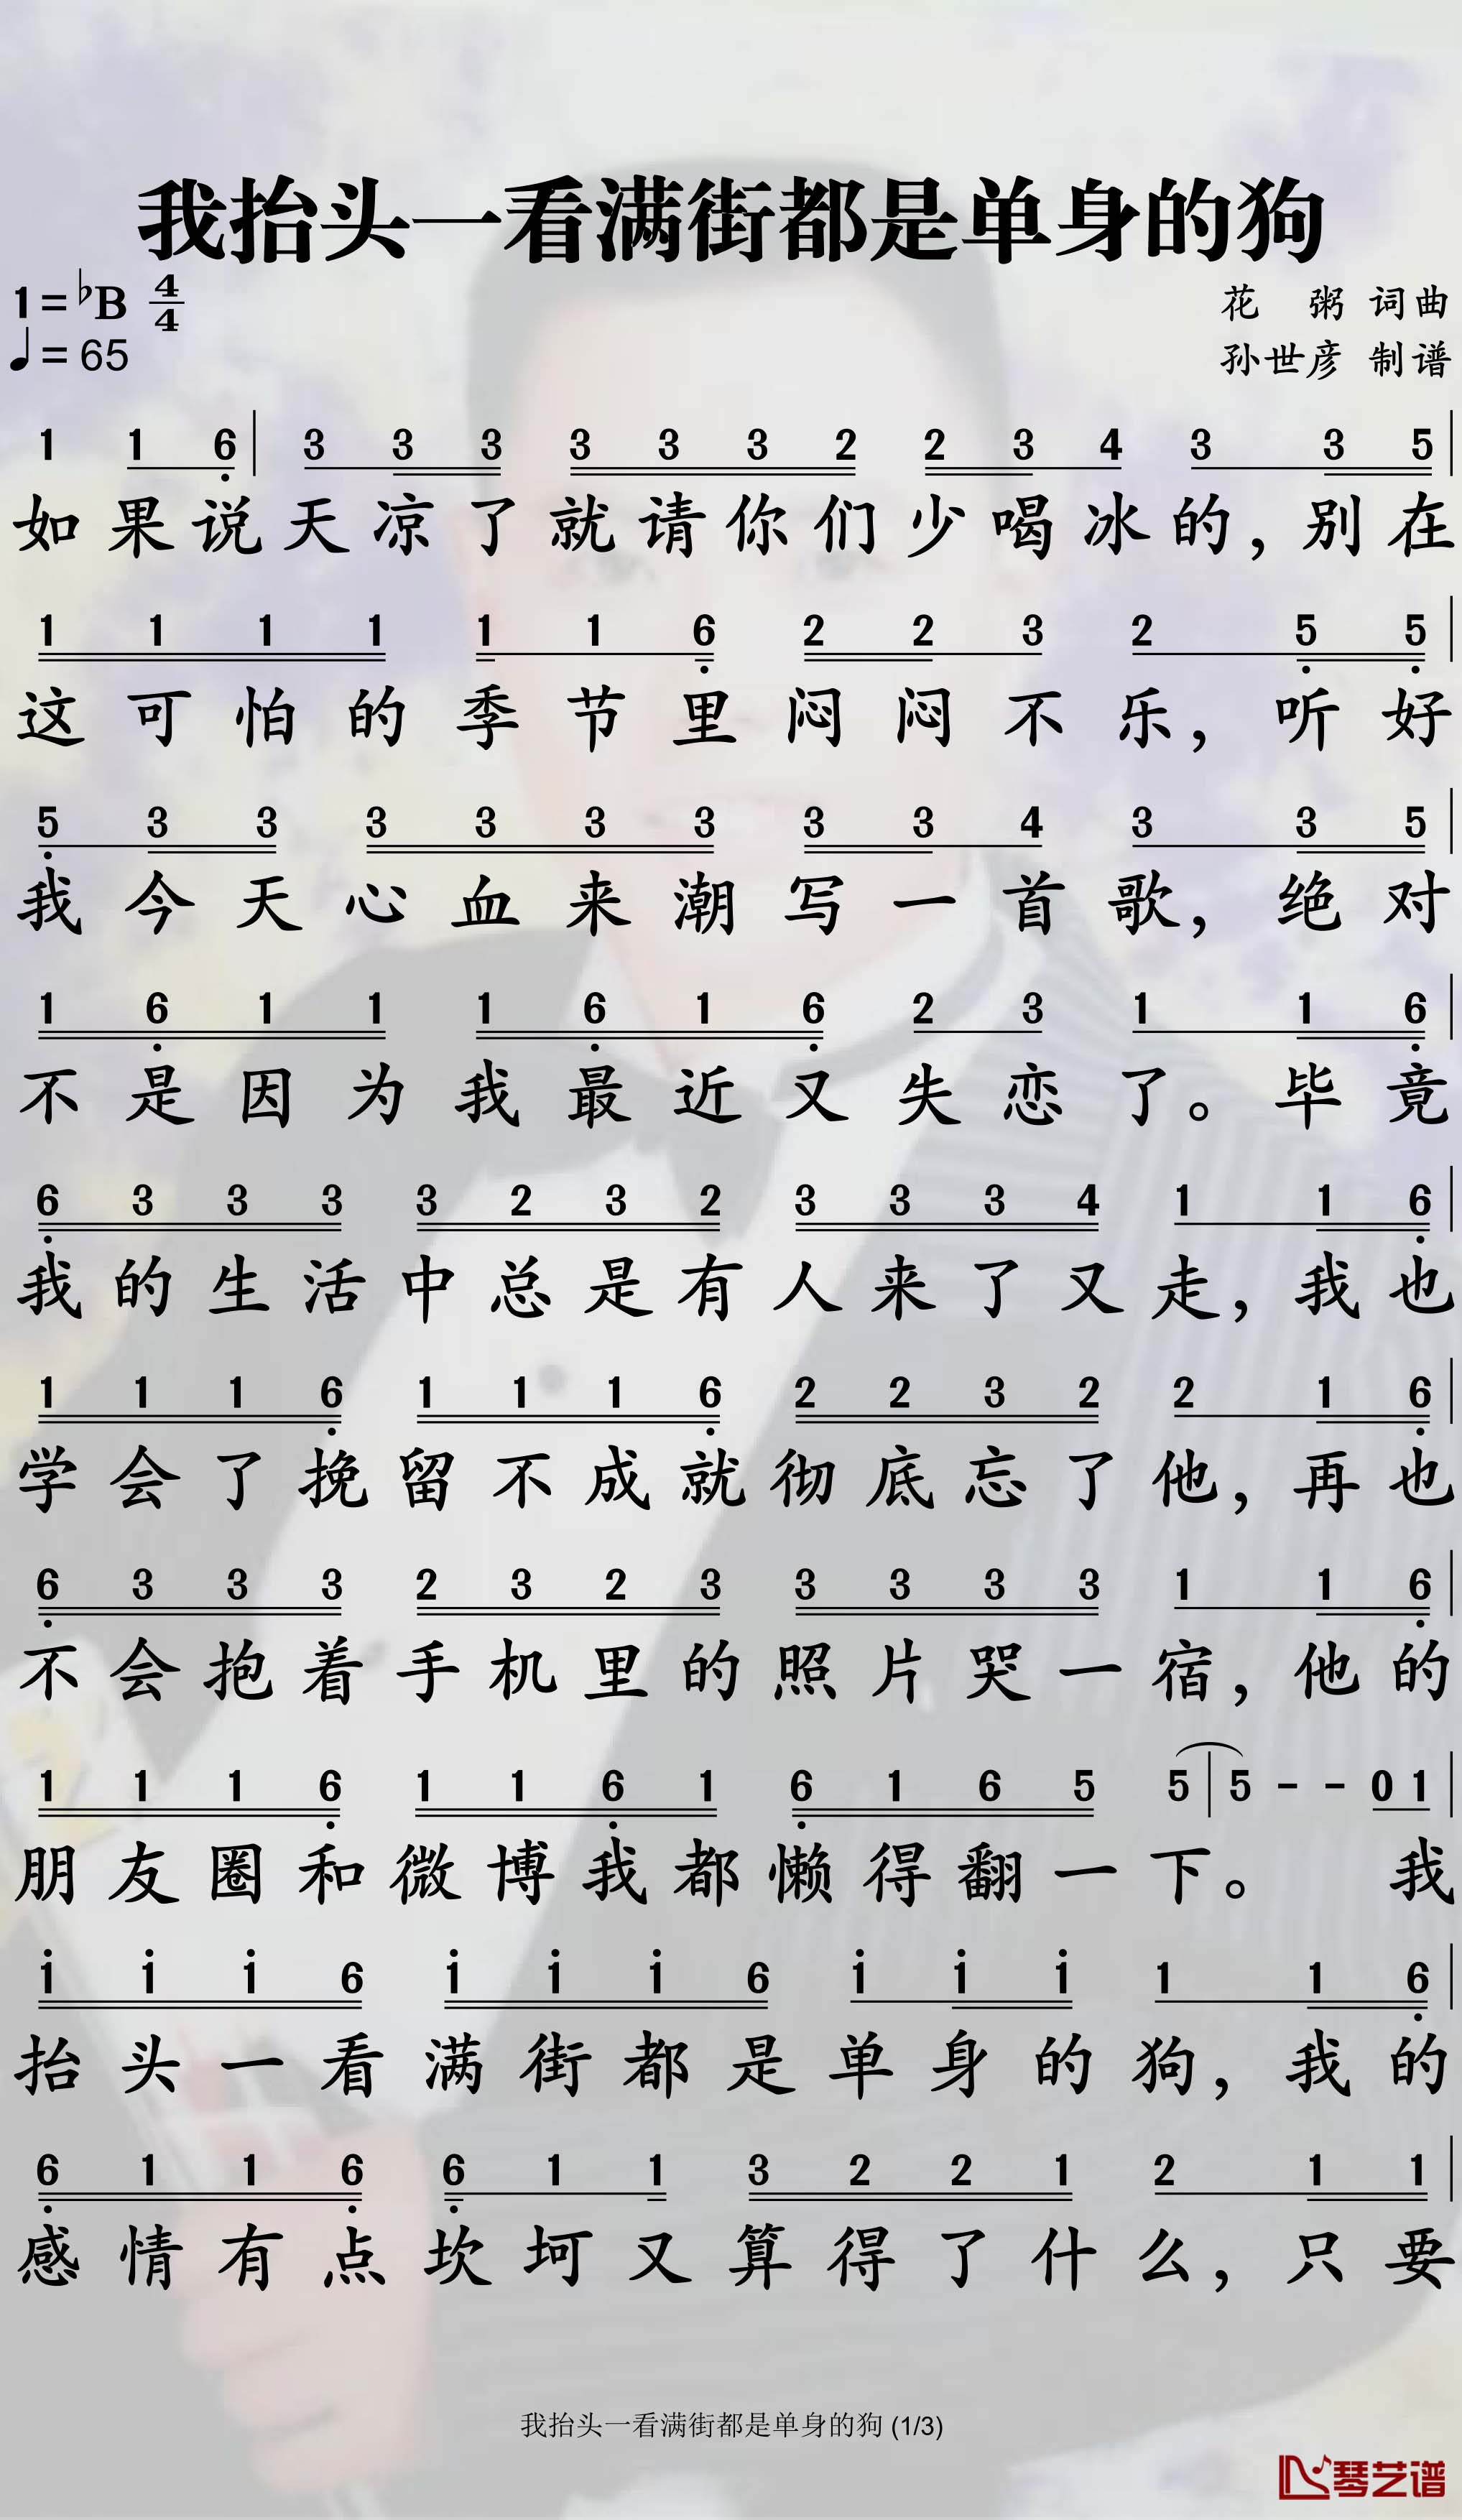 我抬头一看满街都是单身的狗
1=♭B 4/4
♩=65
花 粥 词曲
孙世彦 制谱
1 1 6̣ | 3 3 3 3 3 3 2 2 3 4 3 3 5 |
如果说天凉了就请你们少喝冰的，别在
1 1 1 1 1 1 6̣ 2 2 3 2 5̣ 5̣ |
这可怕的季节里闷闷不乐，听好
5̣ 3 3 3 3 3 3 3 3 4 3 3 5 |
我今天心血来潮写一首歌，绝对
1 6̣ 1 1 1 6̣ 1 6̣ 2 3 1 1 6̣ |
不是因为我最近又失恋了。毕竟
6̣ 3 3 3 3 2 3 2 3 3 3 4 1 1 6̣ |
我的生活中总是有人来了又走，我也
1 1 1 6̣ 1 1 1 6̣ 2 2 3 2 2 1 6̣ |
学会了挽留不成就彻底忘了他，再也
6̣ 3 3 3 2 3 2 3 3 3 3 3 1 1 6̣ |
不会抱着手机里的照片哭一宿，他的
1 1 1 6̣ 1 1 6̣ 1 6̣ 1 6 5 5 | 5 - - 0 1 |
朋友圈和微博我都懒得翻一下。 我
i i i 6 i i i 6 i i i 1 1 6̣ |
抬头一看满街都是单身的狗，我的
6̣ 1 1 6̣ 6̣ 1 1 3 2 2 1 2 1 1 |
感情有点坎坷又算得了什么，只要
我抬头一看满街都是单身的狗 (1/3)
琴艺谱